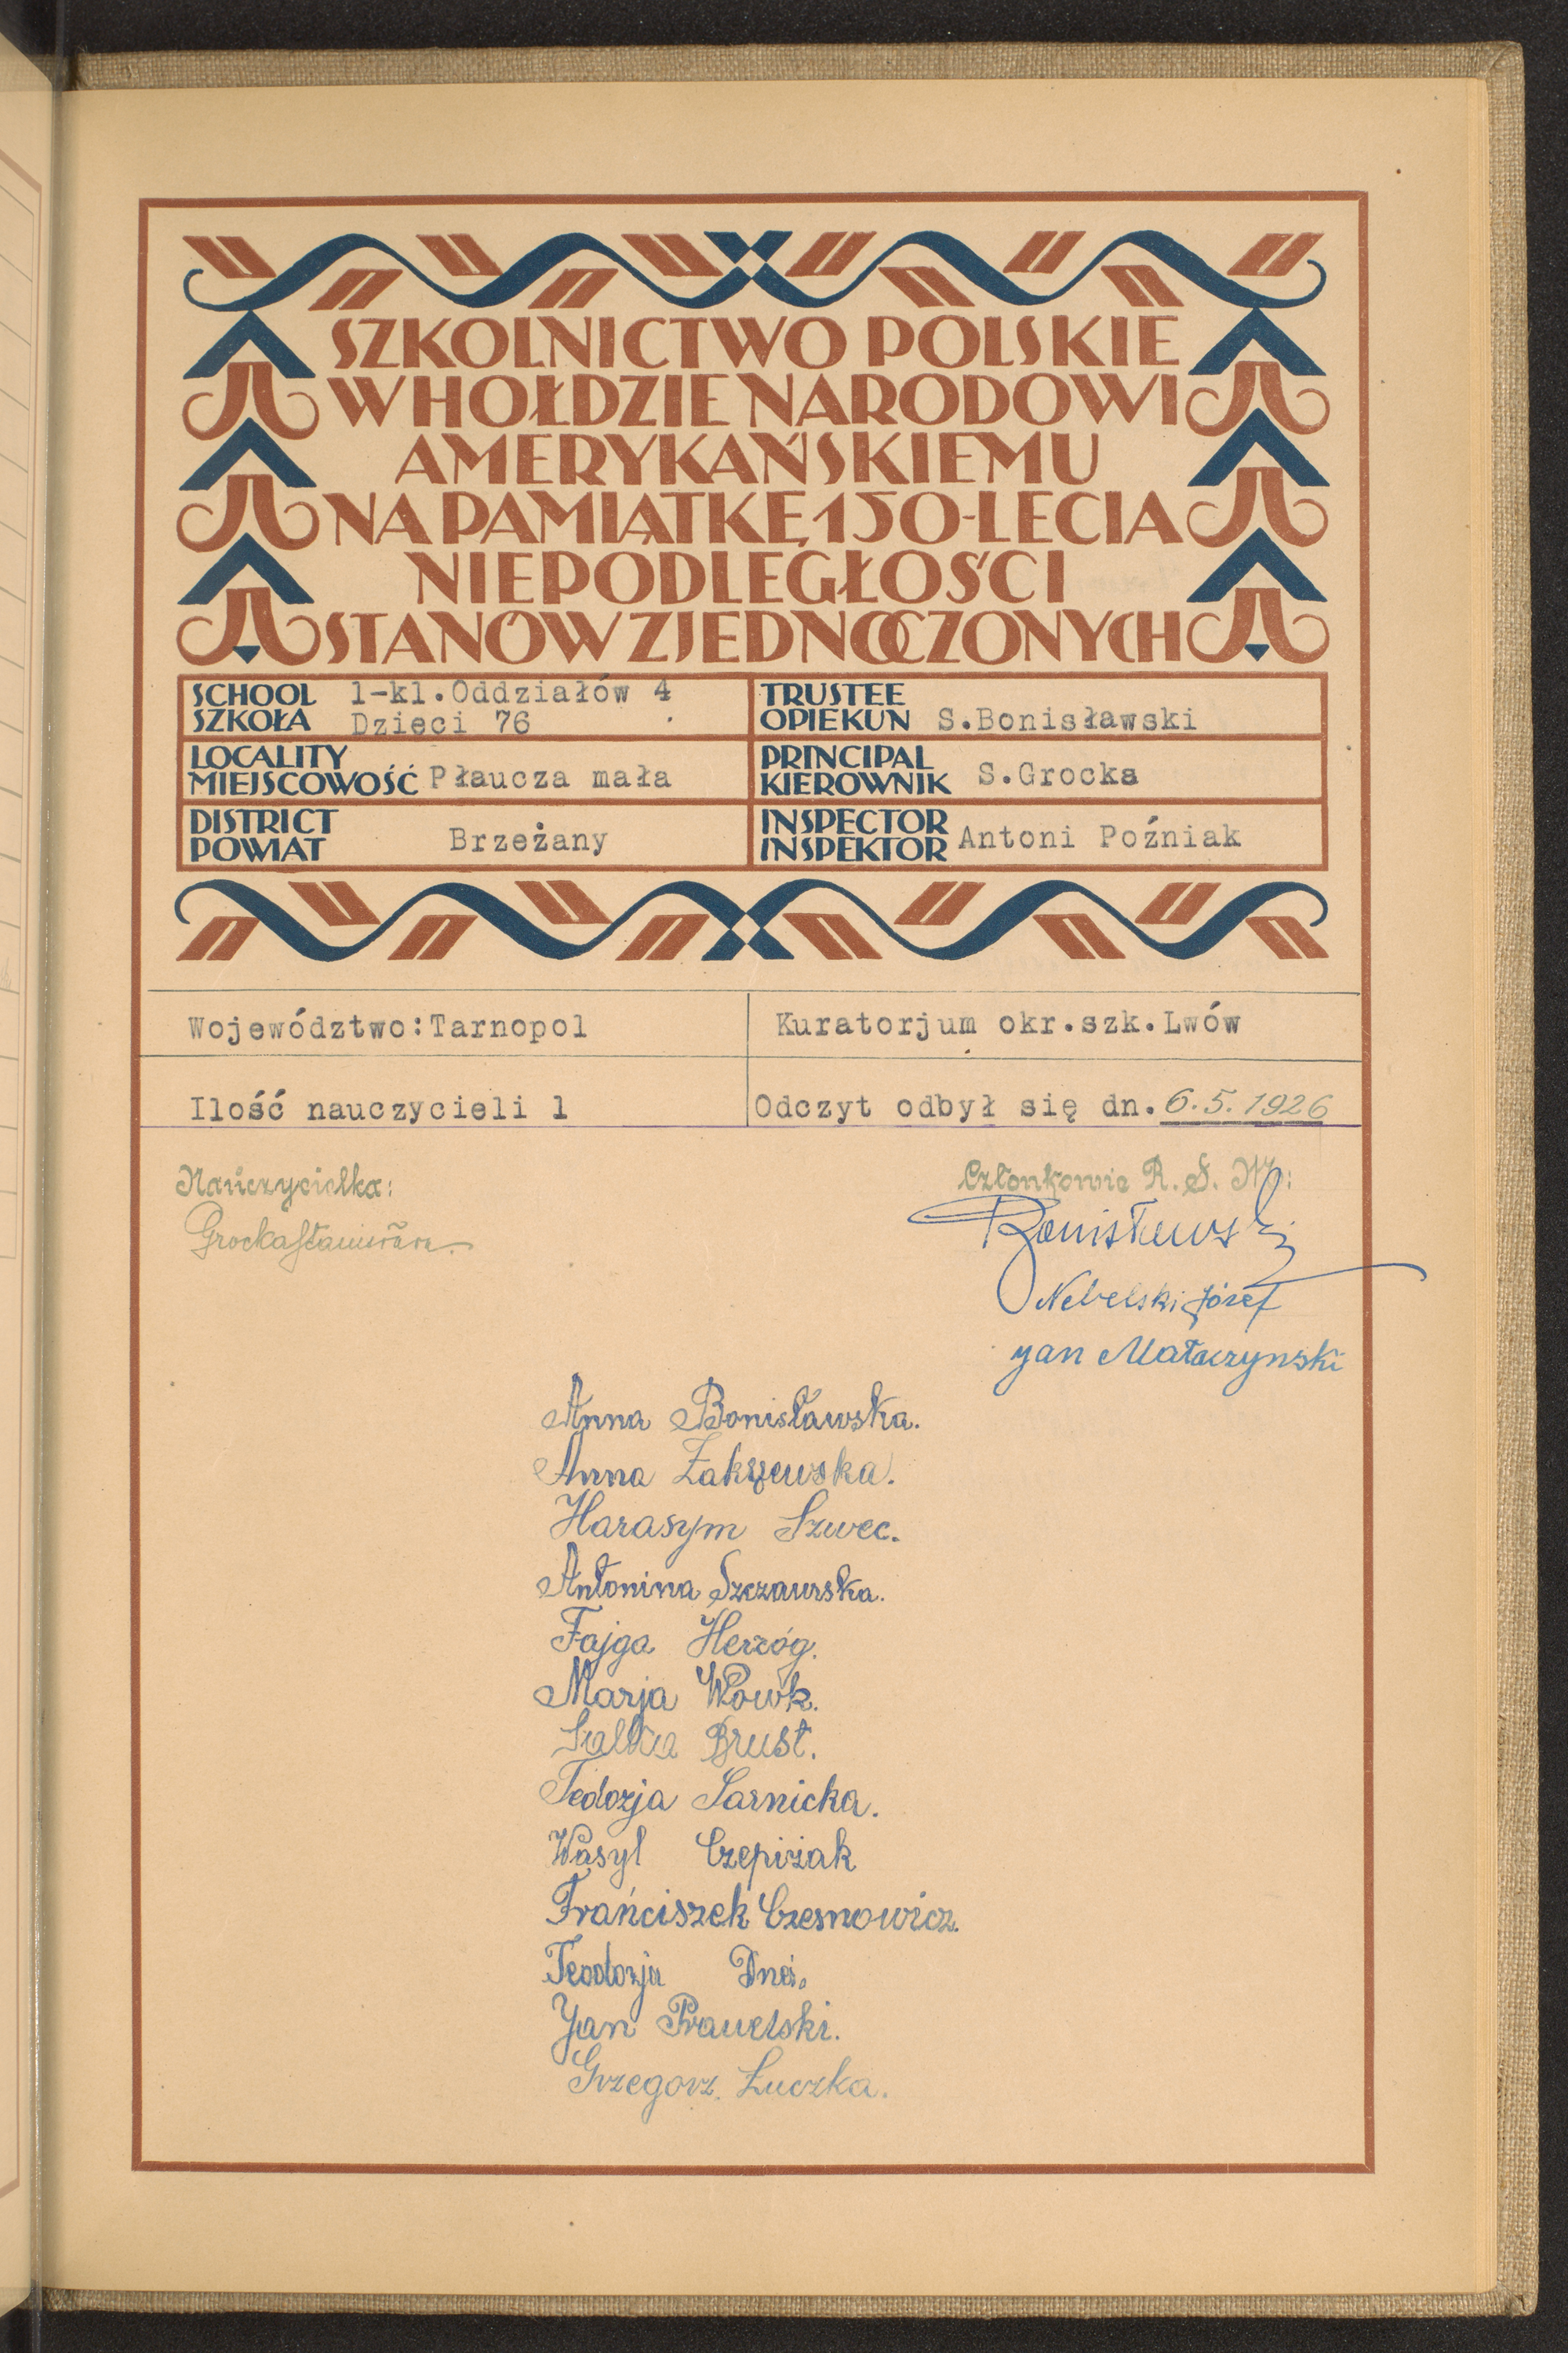 SZKOLNICTWO POLSKIE
W HOŁDZIE NARODOWI
AMERYKAŃSKIEMU
NA PAMIĄTKĘ 150-LECIA
NIEPODLEGŁOŚCI
STANÓW ZJEDNOCZONYCH
SCHOOL
SZKOŁA
1-kl.Oddziałów 4
Dzieci 76
TRUSTEE
OPIEKUN S.Bonisławski
LOCALITY
MIEJSCOWOŚĆ Płaucza mała
PRINCIPAL
KIEROWNIK S.Grocka
DISTRICT
POWIAT Brzeżany
INSPECTOR
INSPEKTOR Antoni Poźniak
Województwo:Tarnopol
Kuratorjum okr.szk.Lwów
Ilość nauczycieli 1
Odczyt odbył się dn. 6.5.1926
Nauczycielka:
Grocka
Członkowie R. S. M.:
Bonisławski
Nebelski Józef
Jan Małaczynski
Anna Bonisławska.
Anna Zakrzewska.
Harasym Szwec.
Antonina Szczawska.
Fajga Herzóg.
Marja Wowk.
Brust.
Tedozja Sarnicka.
Wasyl Czepiżak
Frańciszek Czesnowicz.
Teodozja
Jan Prawelski.
Grzegorz Łuczka.